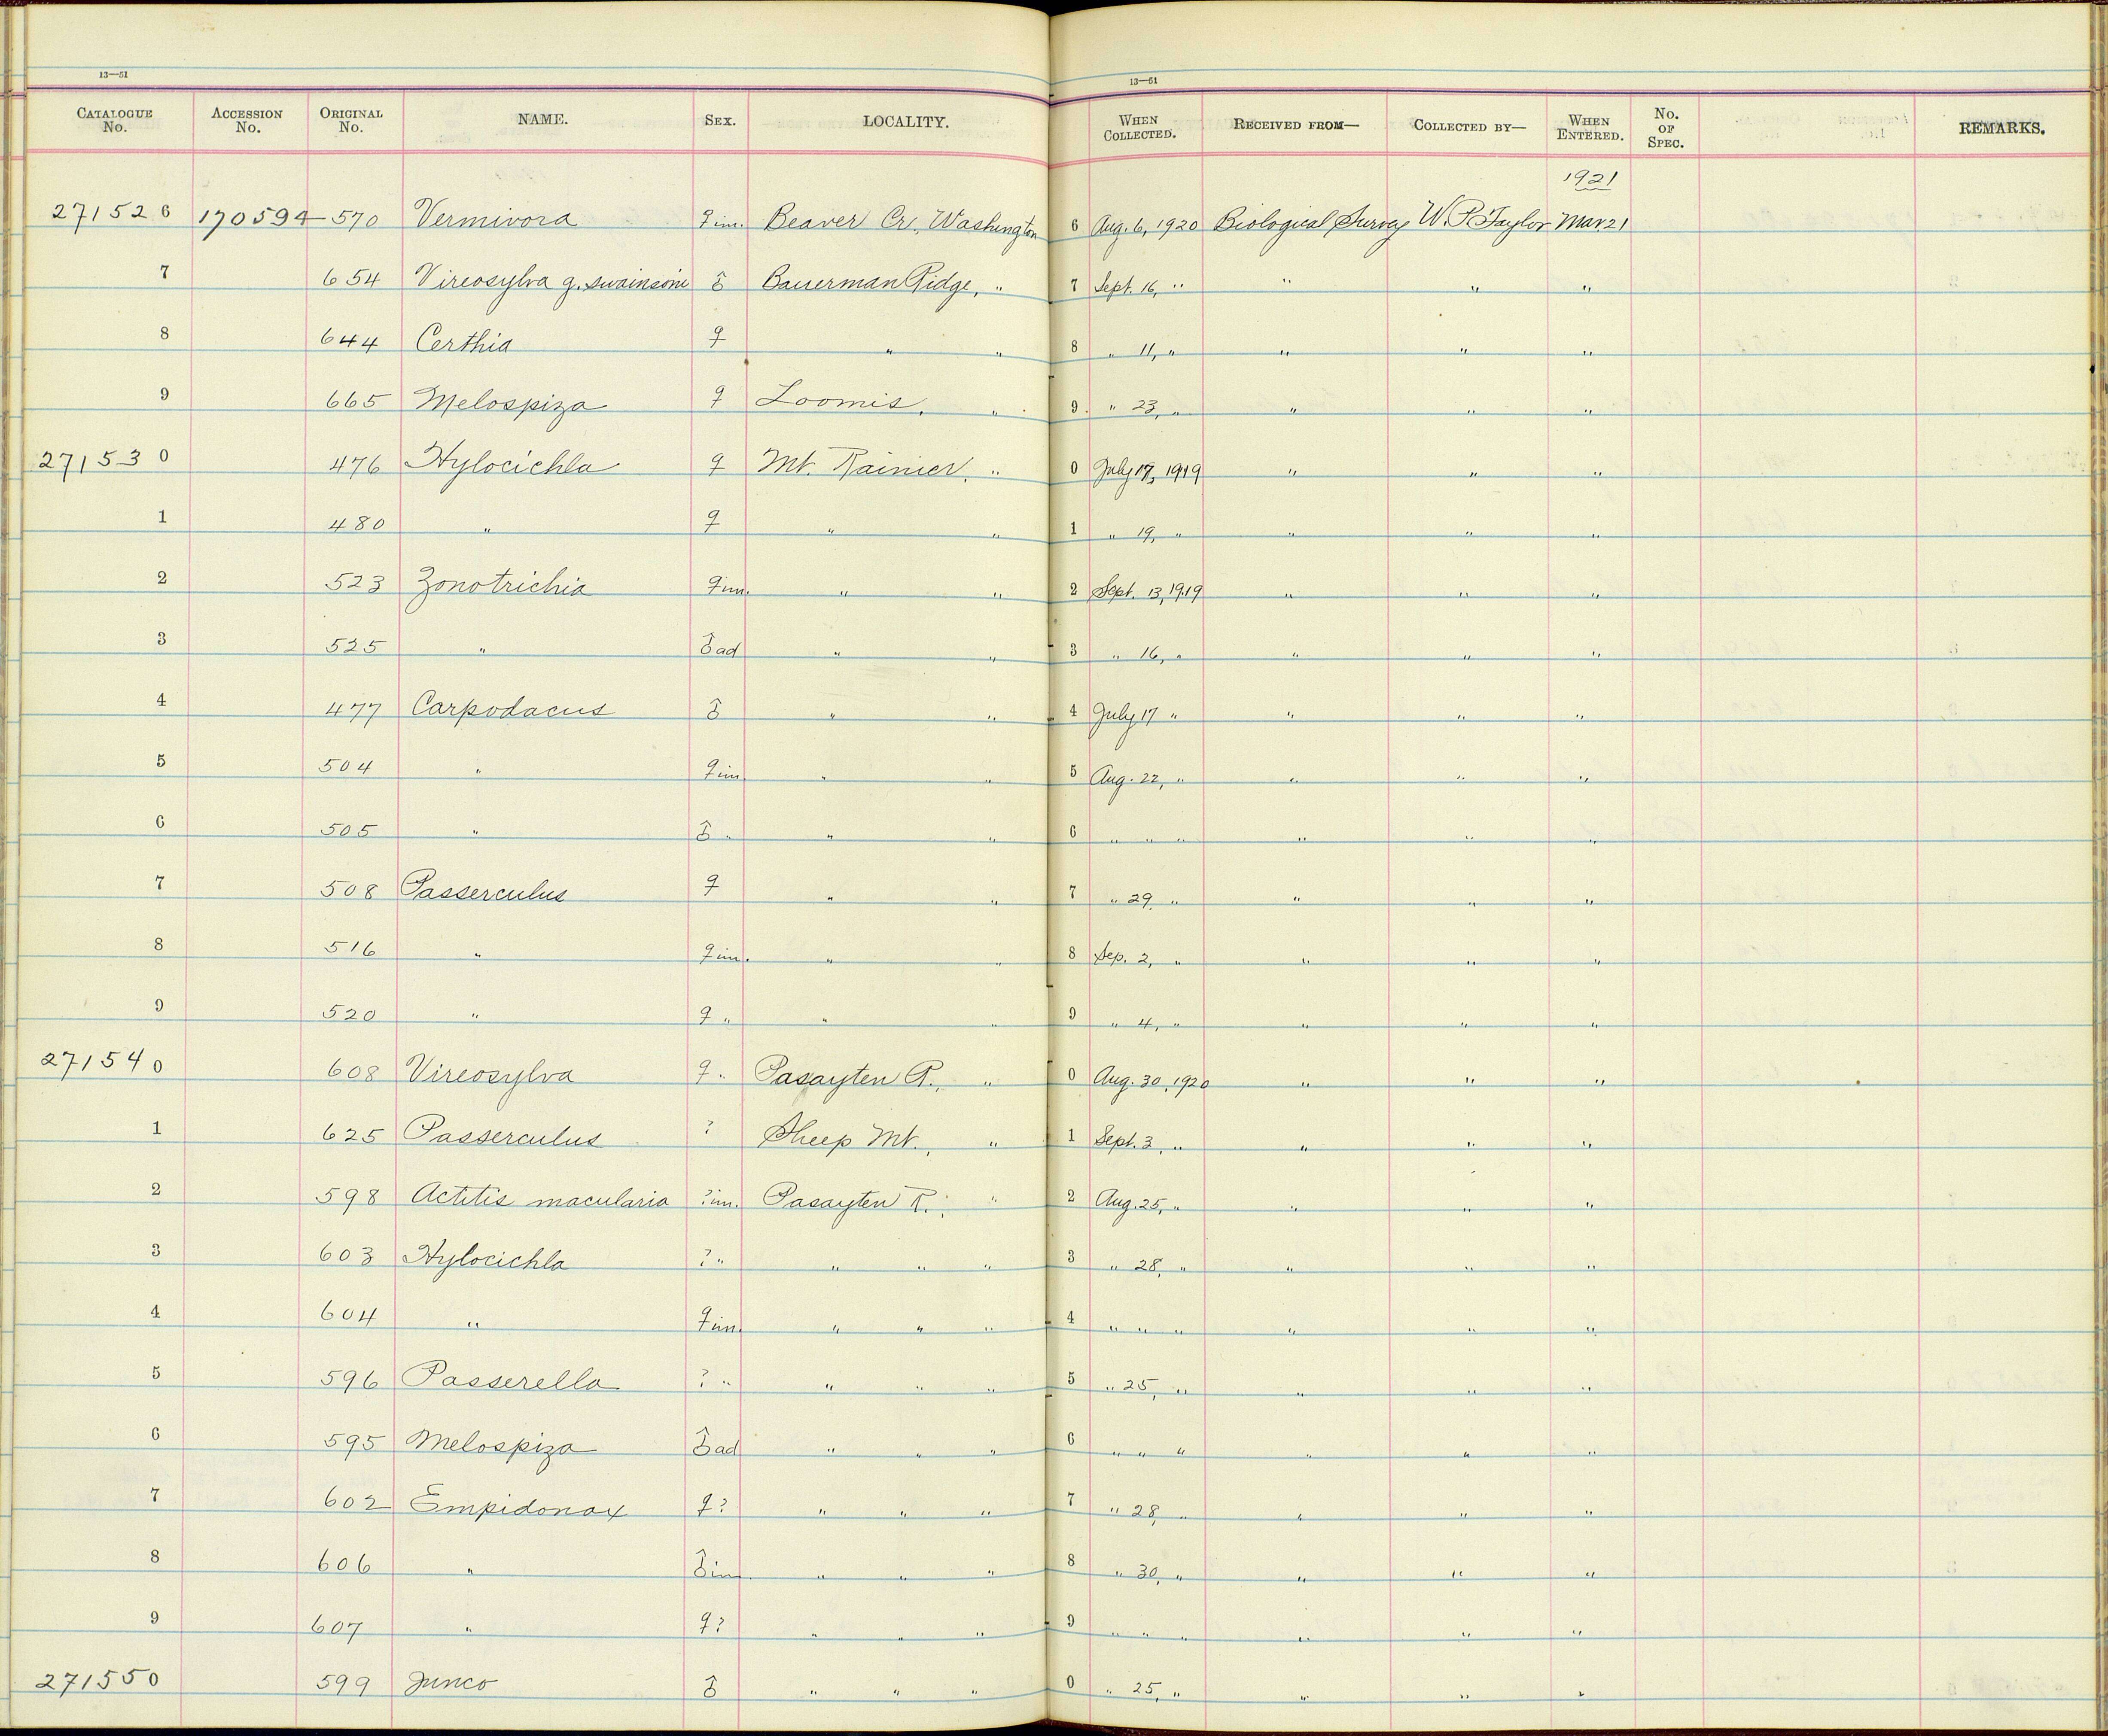 13—51
13—51
CATALOGUE No. ACCESSION No. ORIGINAL No. NAME. SEX. LOCALITY. WHEN COLLECTED. RECEIVED FROM— COLLECTED BY— WHEN ENTERED. No. OF SPEC. REMARKS.
1921
271526 170594 570 Vermivora ♀ im. Beaver Cr., Washington 6 Aug. 6, 1920 Biological Survey W. P. Taylor Mar. 21
7 654 Vireosylva g. swainsoni ♂ Bauerman Ridge, " 7 Sept. 16, " " " "
8 644 Certhia ♀ " " 8 " 11, " " " "
9 665 Melospiza ♀ Loomis, " 9 " 23, " " " "
271530 476 Hylocichla ♀ Mt. Rainier, " 0 July 17, 1919 " " "
1 480 " ♀ " " 1 " 19, " " " "
2 523 Zonotrichia ♀ im. " " 2 Sept. 13, 1919 " " "
3 525 " ♂ ad " " 3 " 16, " " " "
4 477 Carpodacus ♂ " " 4 July 17 " " " "
5 504 " ♀ im. " " 5 Aug. 22, " " " "
6 505 " ♂ " " " 6 " " " " " "
7 508 Passerculus ♀ " " 7 " 29, " " " "
8 516 " ♀ im. " " 8 Sep. 2, " " " "
9 520 " ♀ " " " 9 " 4, " " " "
271540 608 Vireosylva ♀ " Pasayten R., " 0 Aug. 30, 1920 " " "
1 625 Passerculus ? Sheep Mt., " 1 Sept. 3, " " " "
2 598 Actitis macularia ? im. Pasayten R., " 2 Aug. 25, " " " "
3 603 Hylocichla ? " " " " 3 " 28, " " " "
4 604 " ♀ im. " " " 4 " " " " " "
5 596 Passerella ? " " " " 5 " 25, " " " "
6 595 Melospiza ♂ ad " " " 6 " " " " " "
7 602 Empidonax ♀ ? " " " 7 " 28, " " " "
8 606 " ♂ im. " " " 8 " 30, " " " "
9 607 " ♀ ? " " " 9 " " " " " "
271550 599 Junco ♂ " " " 0 " 25, " " " "